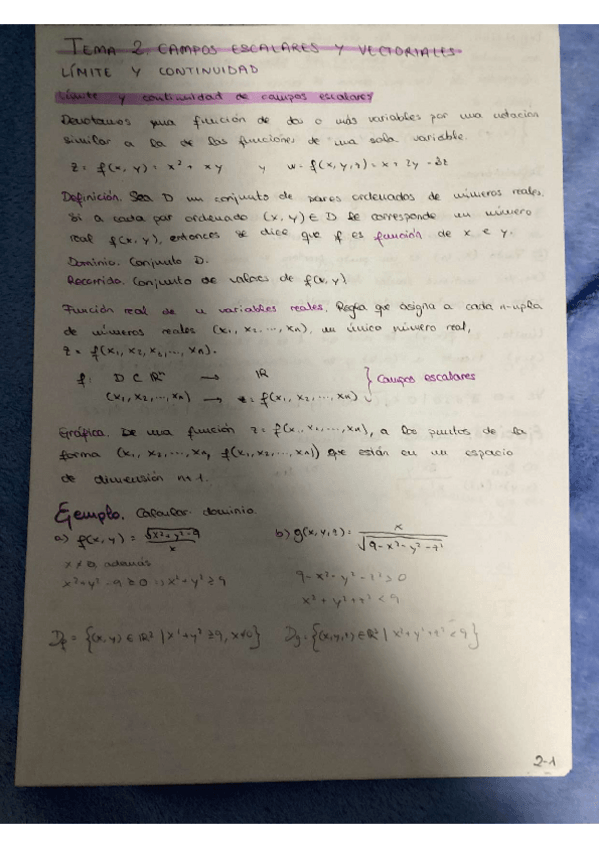 TEMA 2. CAMPOS ESCALARES Y VECTORIALES
LÍMITE Y CONTINUIDAD
Límite y continuidad de campos escalares
Denotamos una función de dos o más variables por una notación
similar a la de las funciones de una sola variable.
z = f(x, y) = x² + xy y w = f(x, y, z) = x + 2y - 3z
Definición. Sea D un conjunto de pares ordenados de números reales.
Si a cada par ordenado (x, y) ∈ D le corresponde un número
real f(x, y), entonces se dice que f es función de x e y.
Dominio. Conjunto D.
Recorrido. Conjunto de valores de f(x, y)
Función real de n variables reales. Regla que asigna a cada n-upla
de números reales (x₁, x₂, ..., xn), un único número real,
z = f(x₁, x₂, x₃, ..., xn).
f: D ⊂ ℝⁿ → ℝ } Campos escalares
(x₁, x₂, ..., xn) → z = f(x₁, x₂, ..., xn)
Gráfica. De una función z = f(x₁, x₂, ..., xn), a los puntos de la
forma (x₁, x₂, ..., xn, f(x₁, x₂, ..., xn)) que están en un espacio
de dimensión n+1.
Ejemplo. Calcular dominio.
a) f(x, y) = √(x² + y² - 9) / x b) g(x, y, z) = x / √(9 - x² - y² - z²)
x ≠ 0, además
x² + y² - 9 ≥ 0 ; x² + y² ≥ 9 9 - x² - y² - z² > 0
x² + y² + z² < 9
Df = {(x, y) ∈ ℝ² | x² + y² ≥ 9, x ≠ 0} Dg = {(x, y, z) ∈ ℝ³ | x² + y² + z² < 9}
2-1